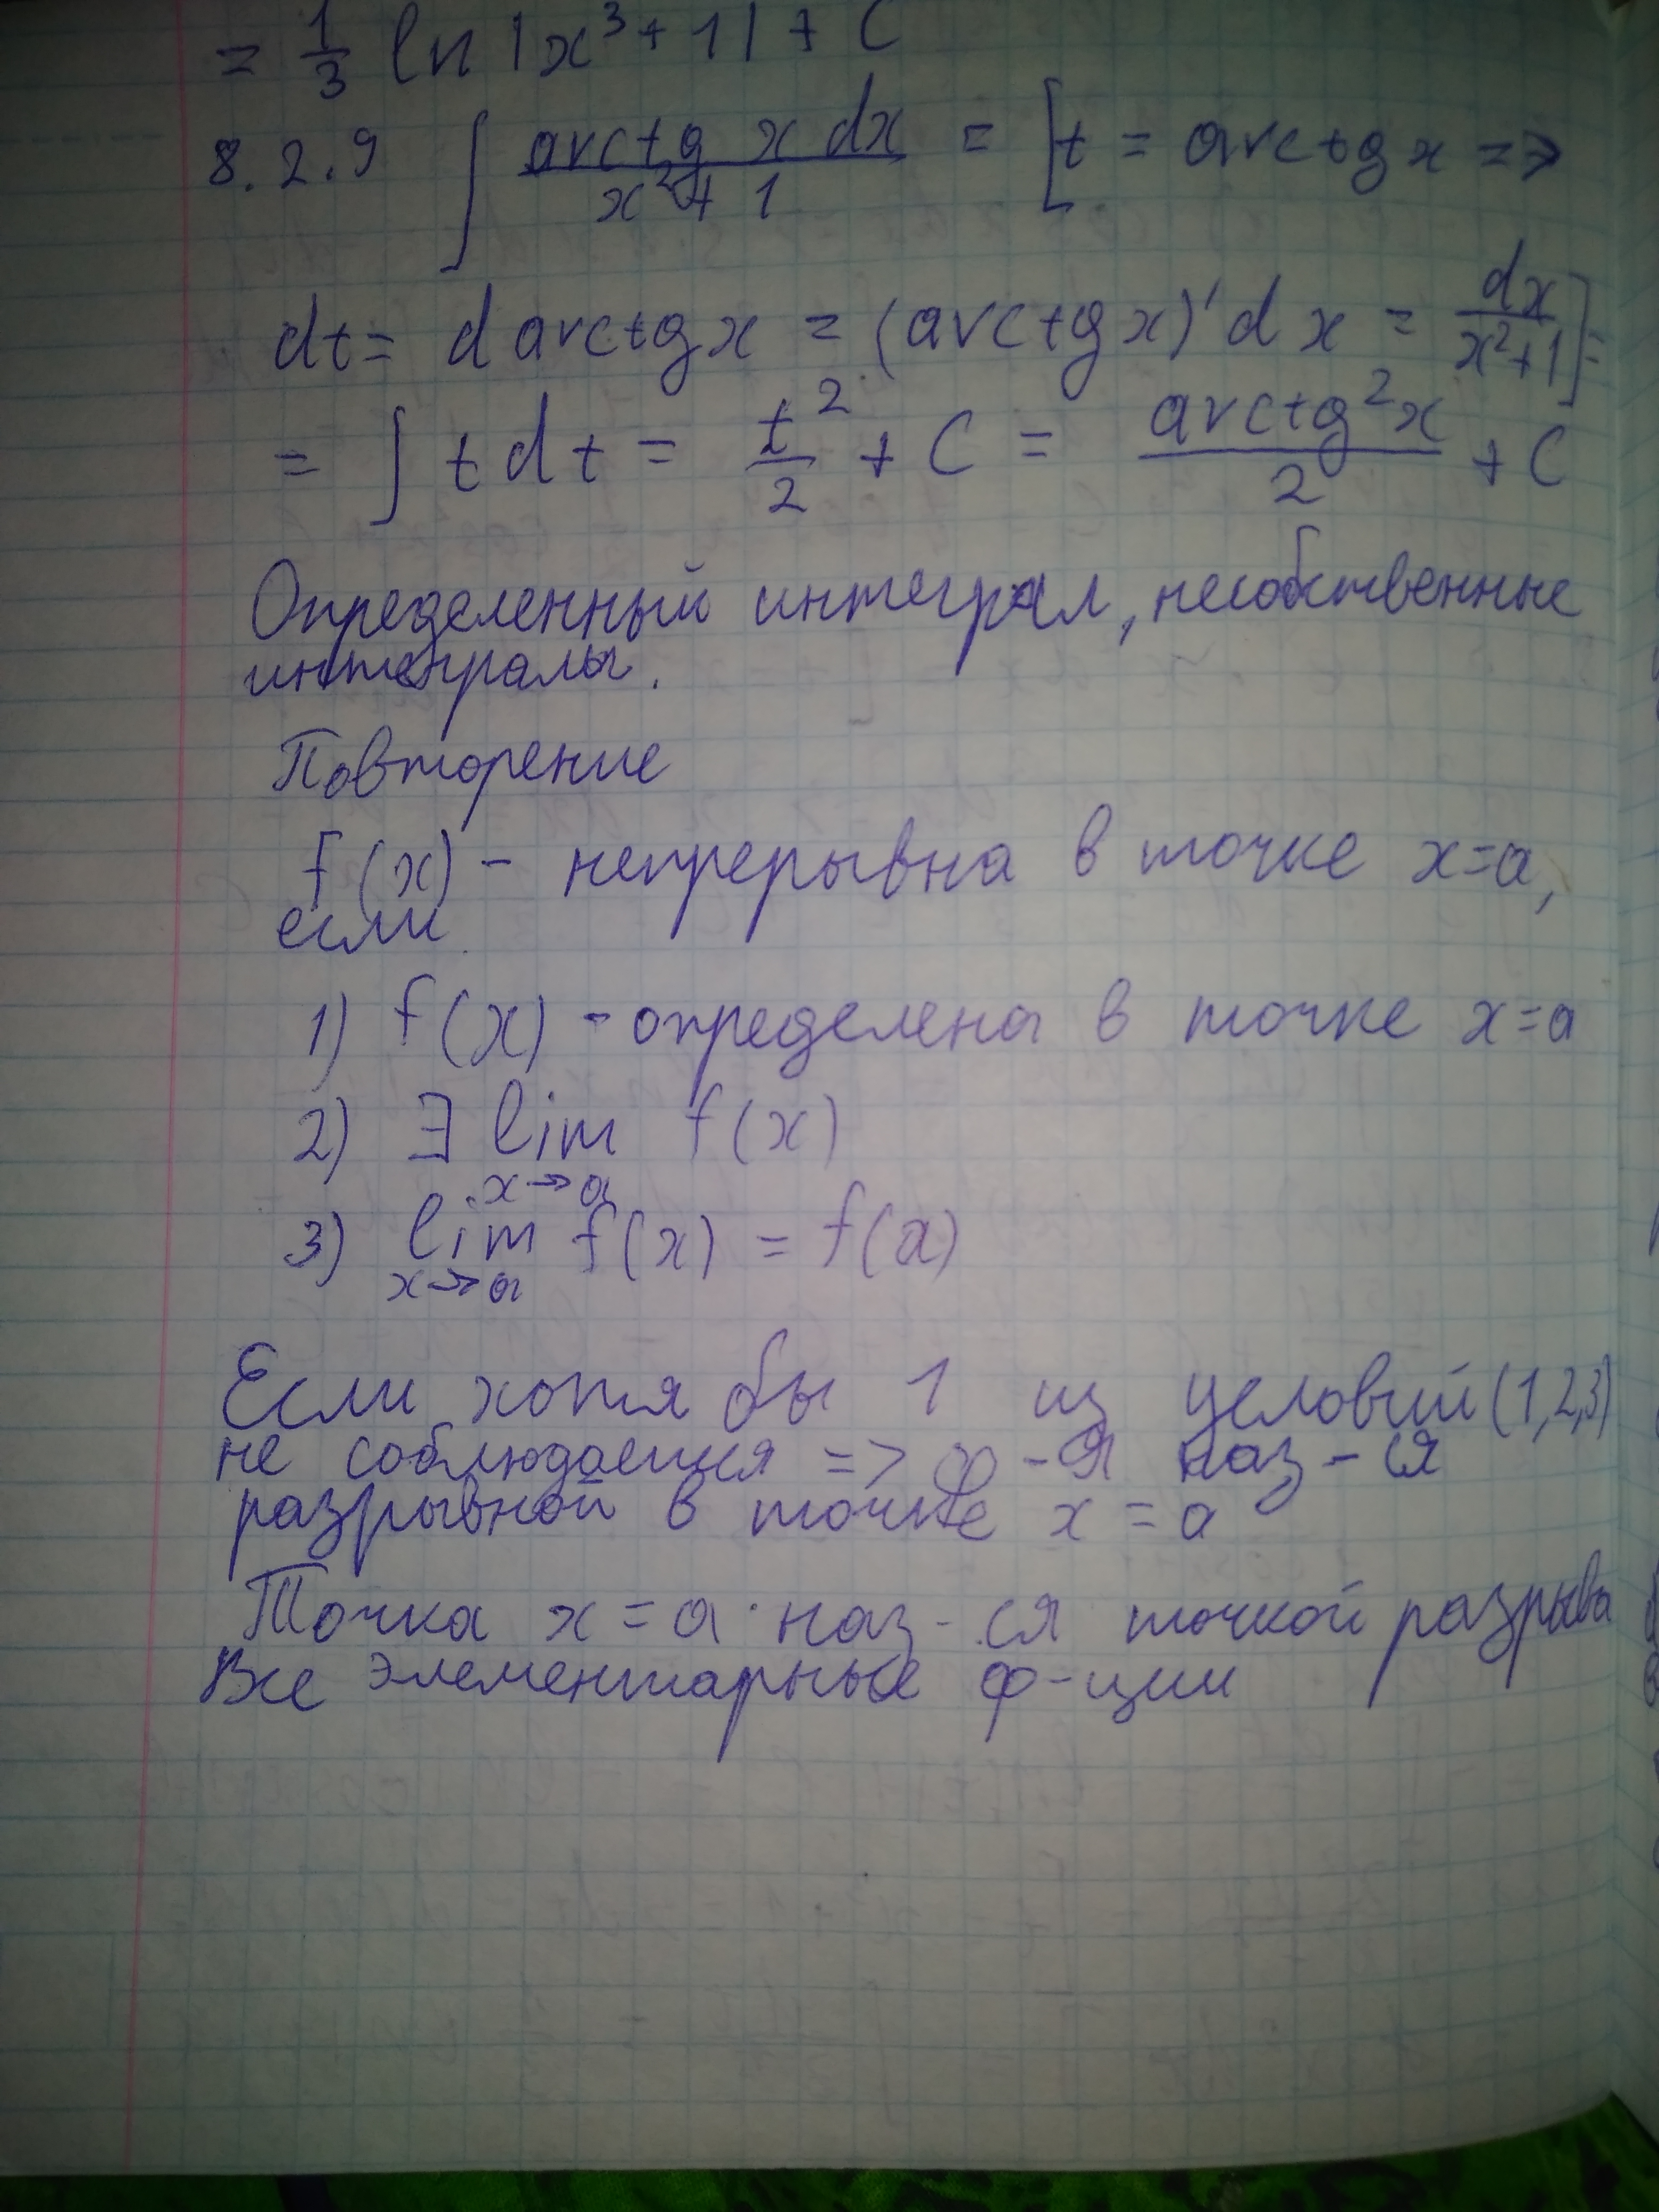 = 1/3 ln |x³ + 1| + C
8.2.9 ∫ arctg x dx / x² + 1 = [t = arctg x =>
dt = d arctg x = (arctg x)' dx = dx / x² + 1] =
= ∫ t dt = t² / 2 + C = arctg² x / 2 + C
Определенный интеграл, несобственные
интегралы.
Повторение
f(x) - непрерывна в точке x=a,
если
1) f(x) - определена в точке x=a
2) ∃ lim x→a f(x)
3) lim x→a f(x) = f(a)
Если хотя бы 1 из условий (1,2,3)
не соблюдается => ф-я наз-ся
разрывной в точке x = a
Точка x = a наз-ся точкой разрыва
Все элементарные ф-ции